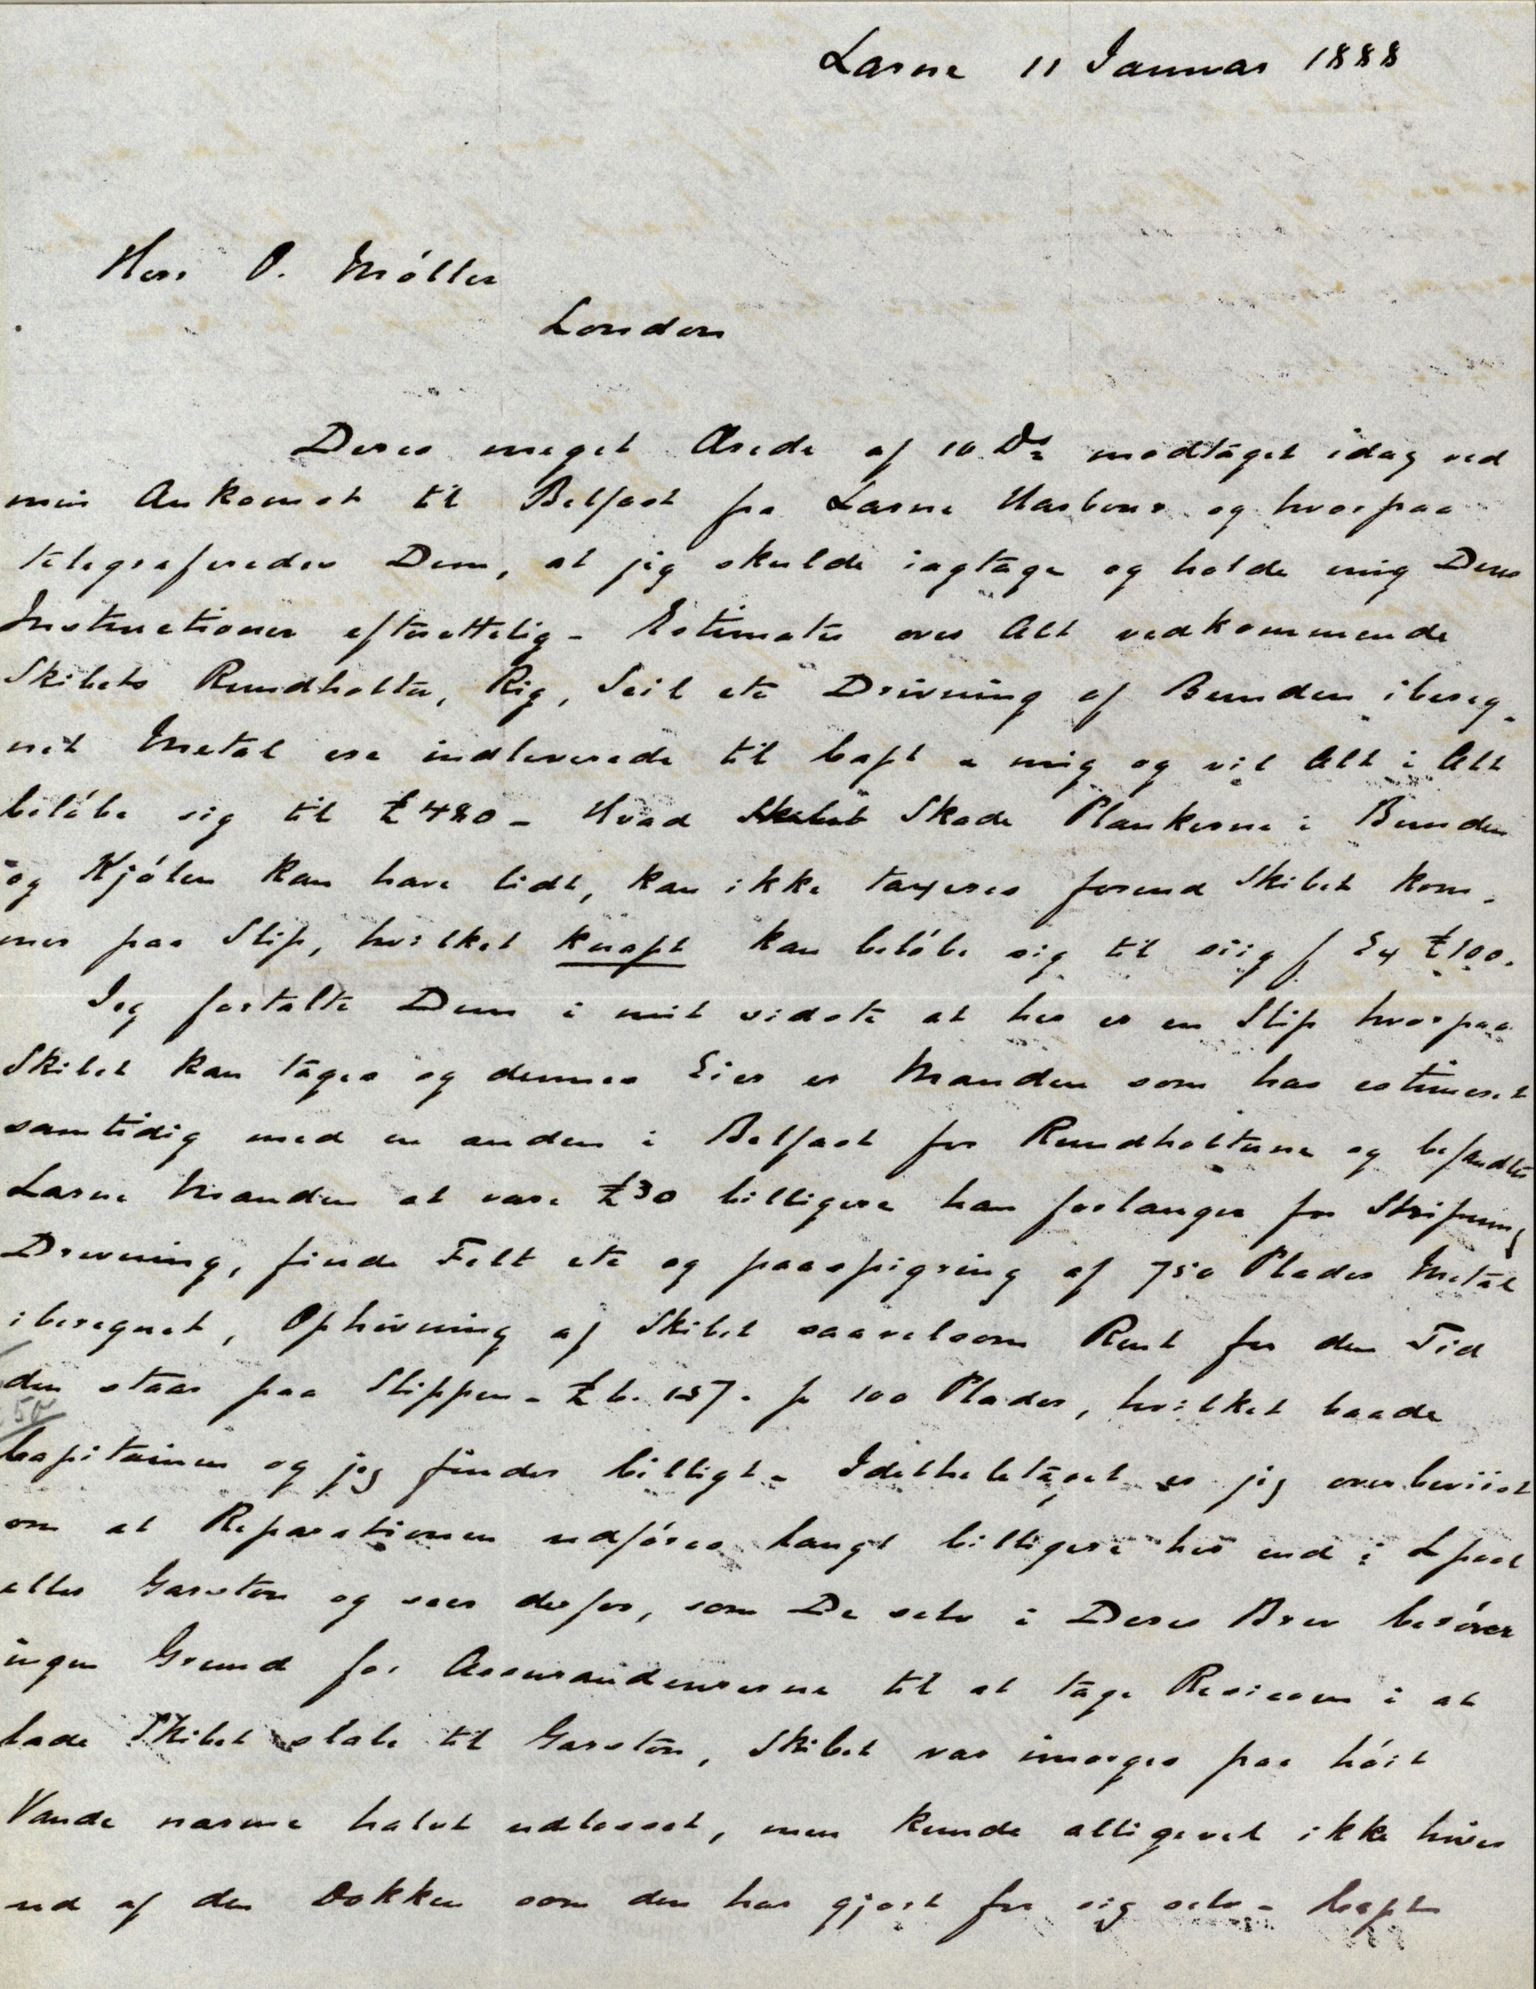 Larne 11 Januar 1888
Herr O. Møller
London
Deres meget Ærede af 10 Ds modtaget idag ved
min Ankomst til Belfast fra Larne Harbour og hvorpaa
telegraferedes Dem, at jeg skulde iagtage og holde mig Deres
Instructioner efterettelig - Estimater over Alt vedkommende
Skibets Rundholter, Rig, Seil etc Drivning af Bunden ibereg-
net Metal ere indleverede til Capt & mig og vil Alt i Alt
beløbe sig til £480 - Hvad Skibet Skade Plankerne i Bunden
og Kjølen kan have lidt, kan ikke taxeres førend Skibet kom-
mer paa Slip, hvilket knapt kan beløbe sig til siig f Ex £100.
Jeg fortalte Dem i mit sidste at her er en Slip hvorpaa
Skibet kan tages og dennes Eier er Manden som har estimeret
samtidig med en anden i Belfast for Rundholterne og befandtes
Larne Manden at være £30 billigere han forlanger for Stripning
Drevning, finde Felt etc og paaspigring af 750 Plader Metal
iberegnet, Ophivning af Skibet saavelsom Rent for den Tid
den staar paa Slippen - £6. 15/. pr 100 Plader, hvilket baade
50
Capitainen og jeg finder billigt - Idethele taget er jeg overbeviist
om at Reparationen udføres langt billigere her end i Lpool
eller Garston og seer derfor, som De selv i Deres Brev berører
ingen Grund for Assurandeurerne til at tage Resicoen i at
lade Skibet slæbe til Garston, Skibet var imorges paa høit
Vande nærme halvt udlosset, men kunde alligevel ikke hives
ud af den Dokken som den har gjort for sig selv - Capt